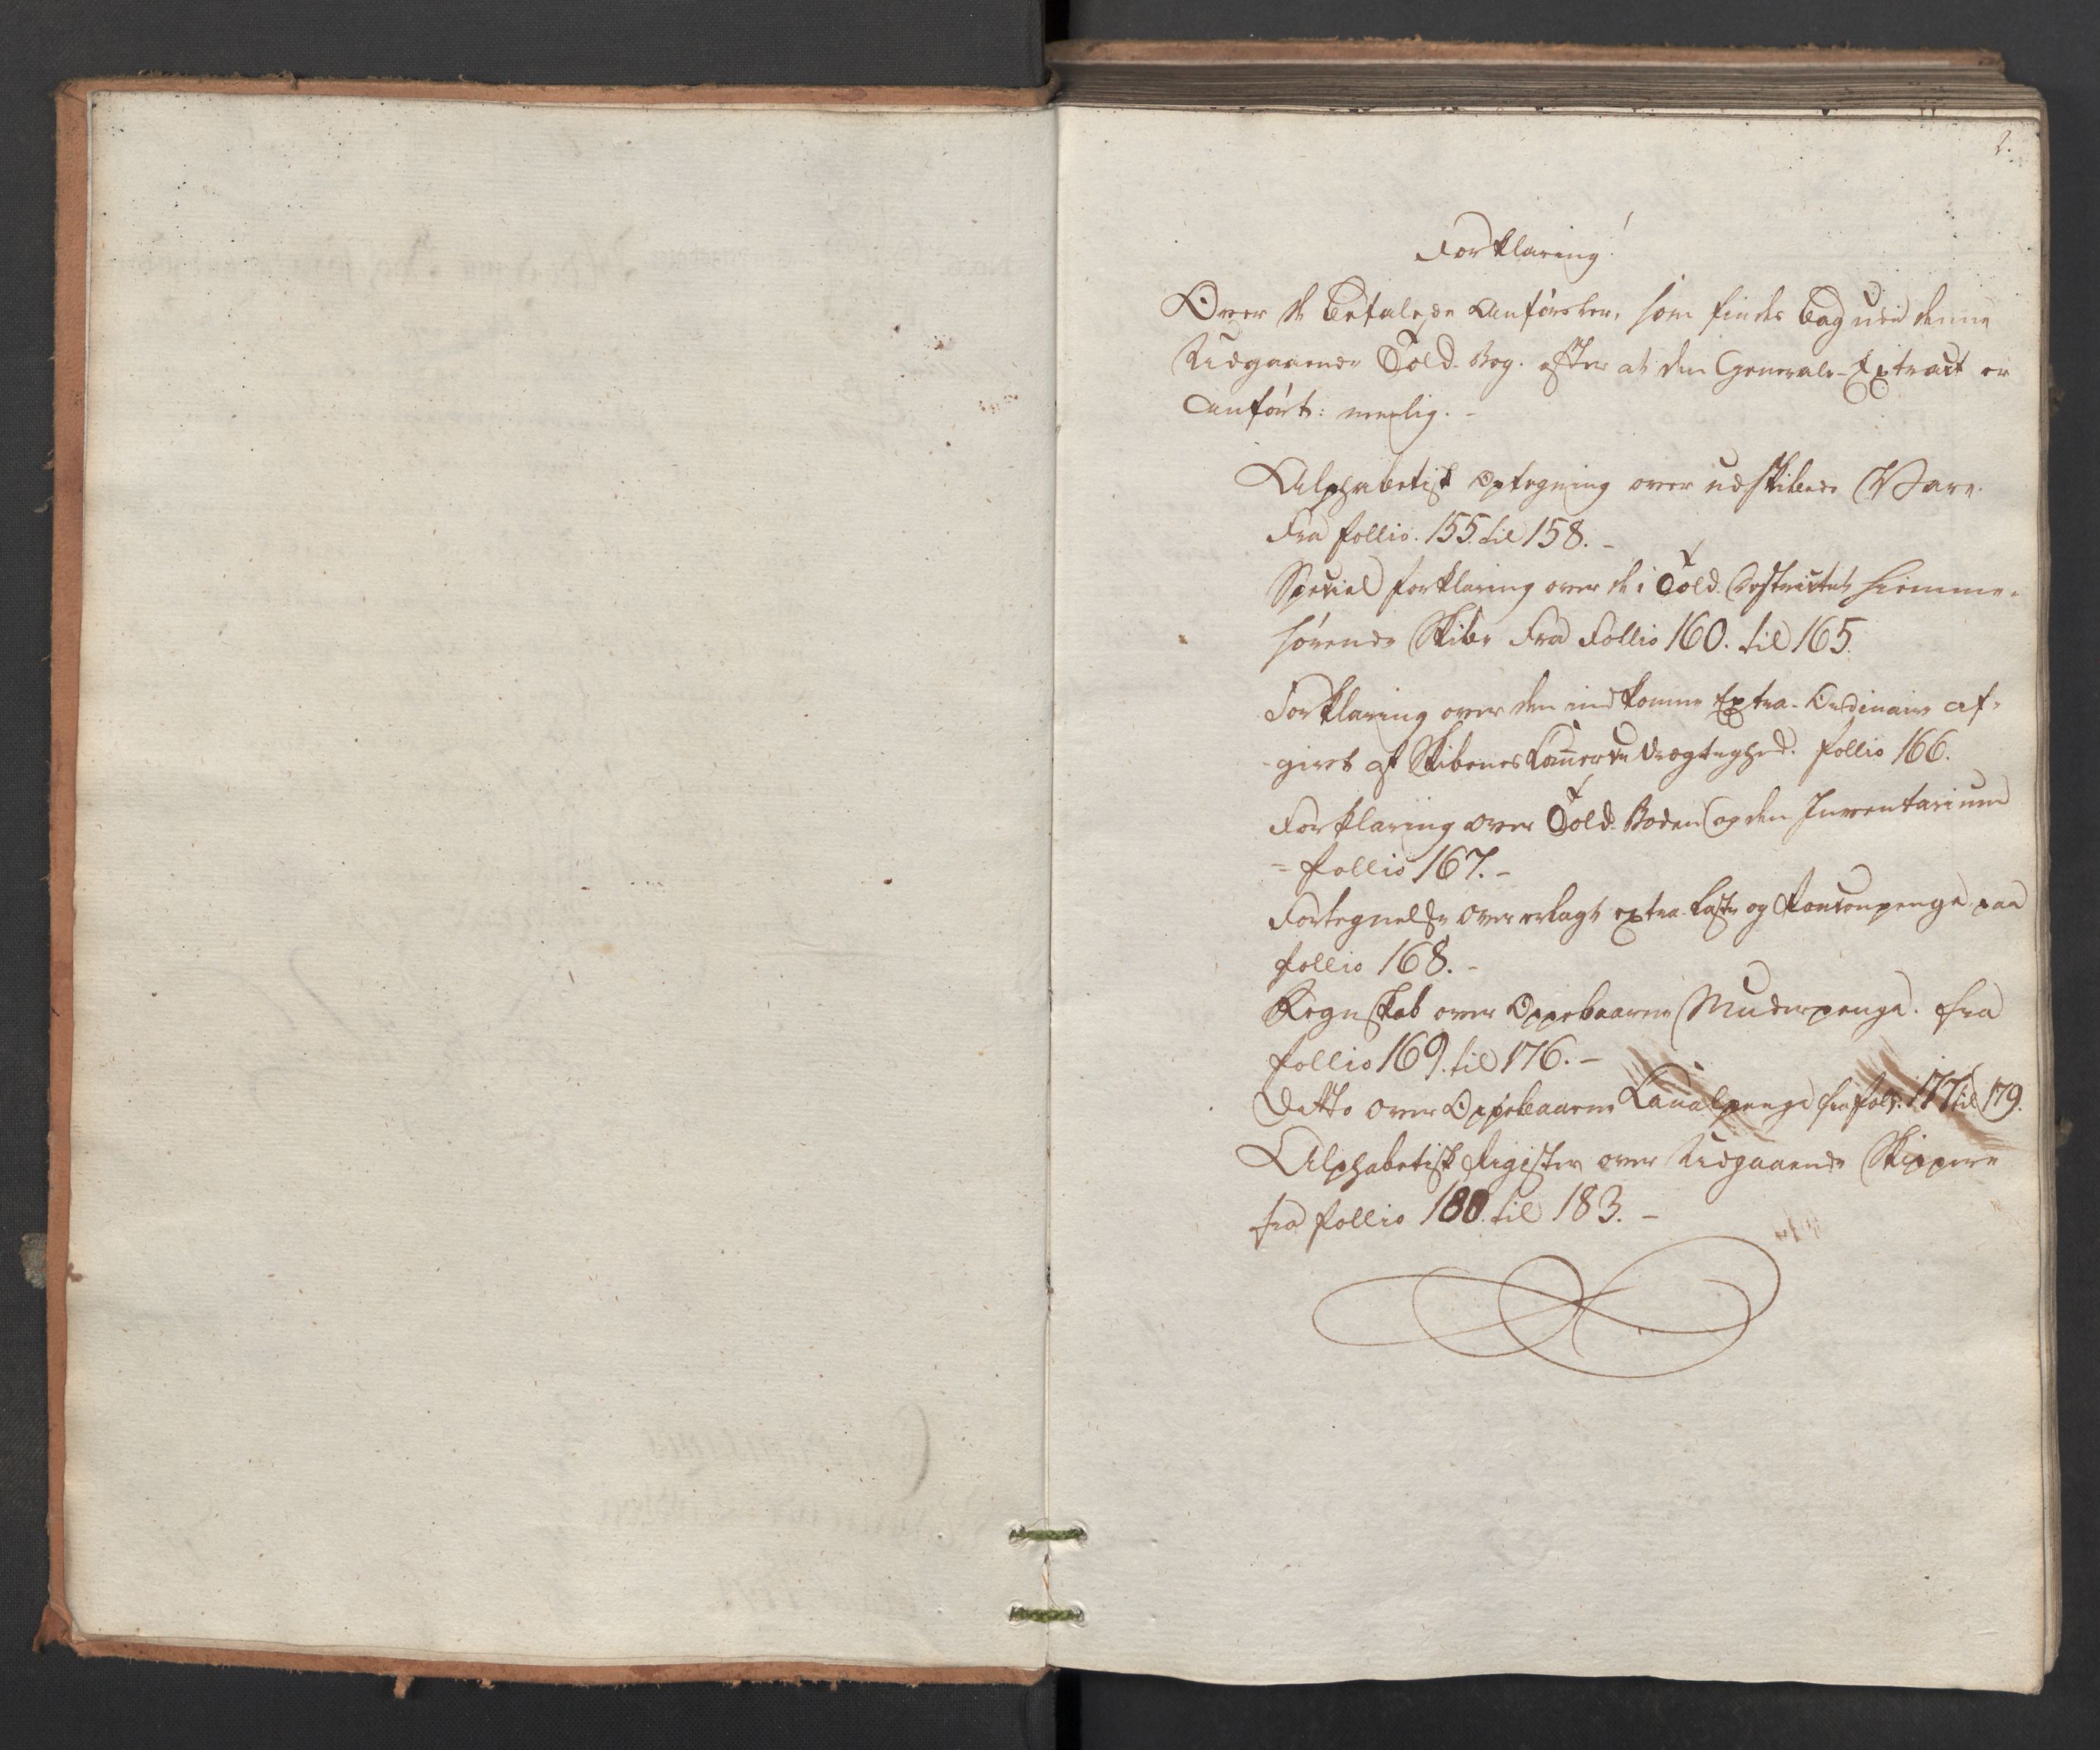 2.
Forklaring!
Over de Anførsler, som findes bag udi denne
Udgaaende Told-Bog. efter at den Generale-Extract er
Anført: nemlig. -
Alphabetisk Optegning over udskibede Vare.
Fra follio. 155. til 158. -
Speciel forklaring over de i Told-Districtet hiemme-
hørende Skibe Fra Follio 160. til 165.
Forklaring over den indkomne Extra-Ordinaire af-
-givt af Skibenes Drægtighed. follio 166.
Forklaring over Told-Boden og den Inventarium
= follio 167. -
Fortegnelse over erlagt extra-Læste og paa
follio 168. -
Regnskab over Oppebaarne Muderpenge. fra
follio 169. til 176. -
Ditto over Oppebaarne Canalpenge fra fol: 177 til 179.
Alphabetisk Register over Udgaaende Skippere
fra follio 180. til 183. -